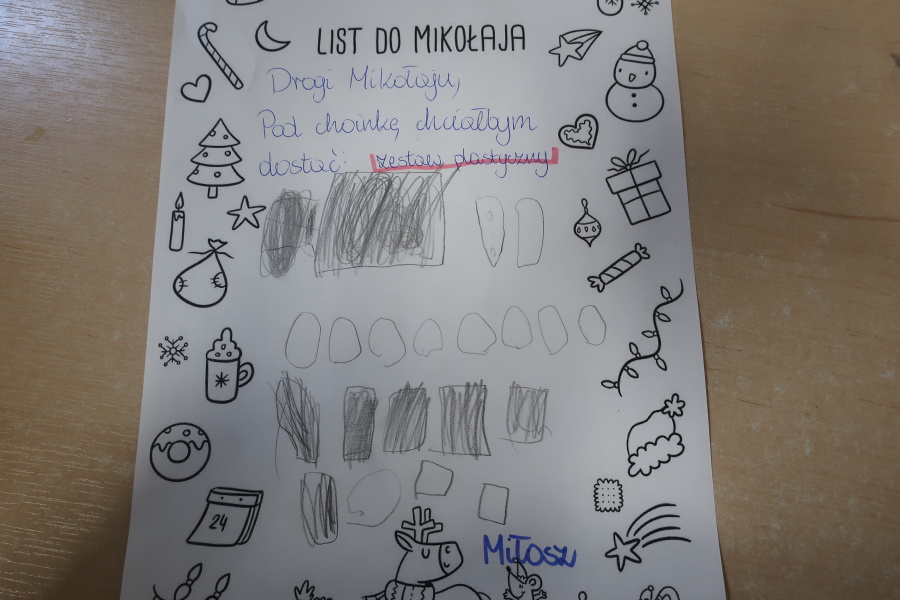 LIST DO MIKOŁAJA
Drogi Mikołaju,
Pod choinkę chciałbym
dostać: zestaw plastyczny
24
Miłosz